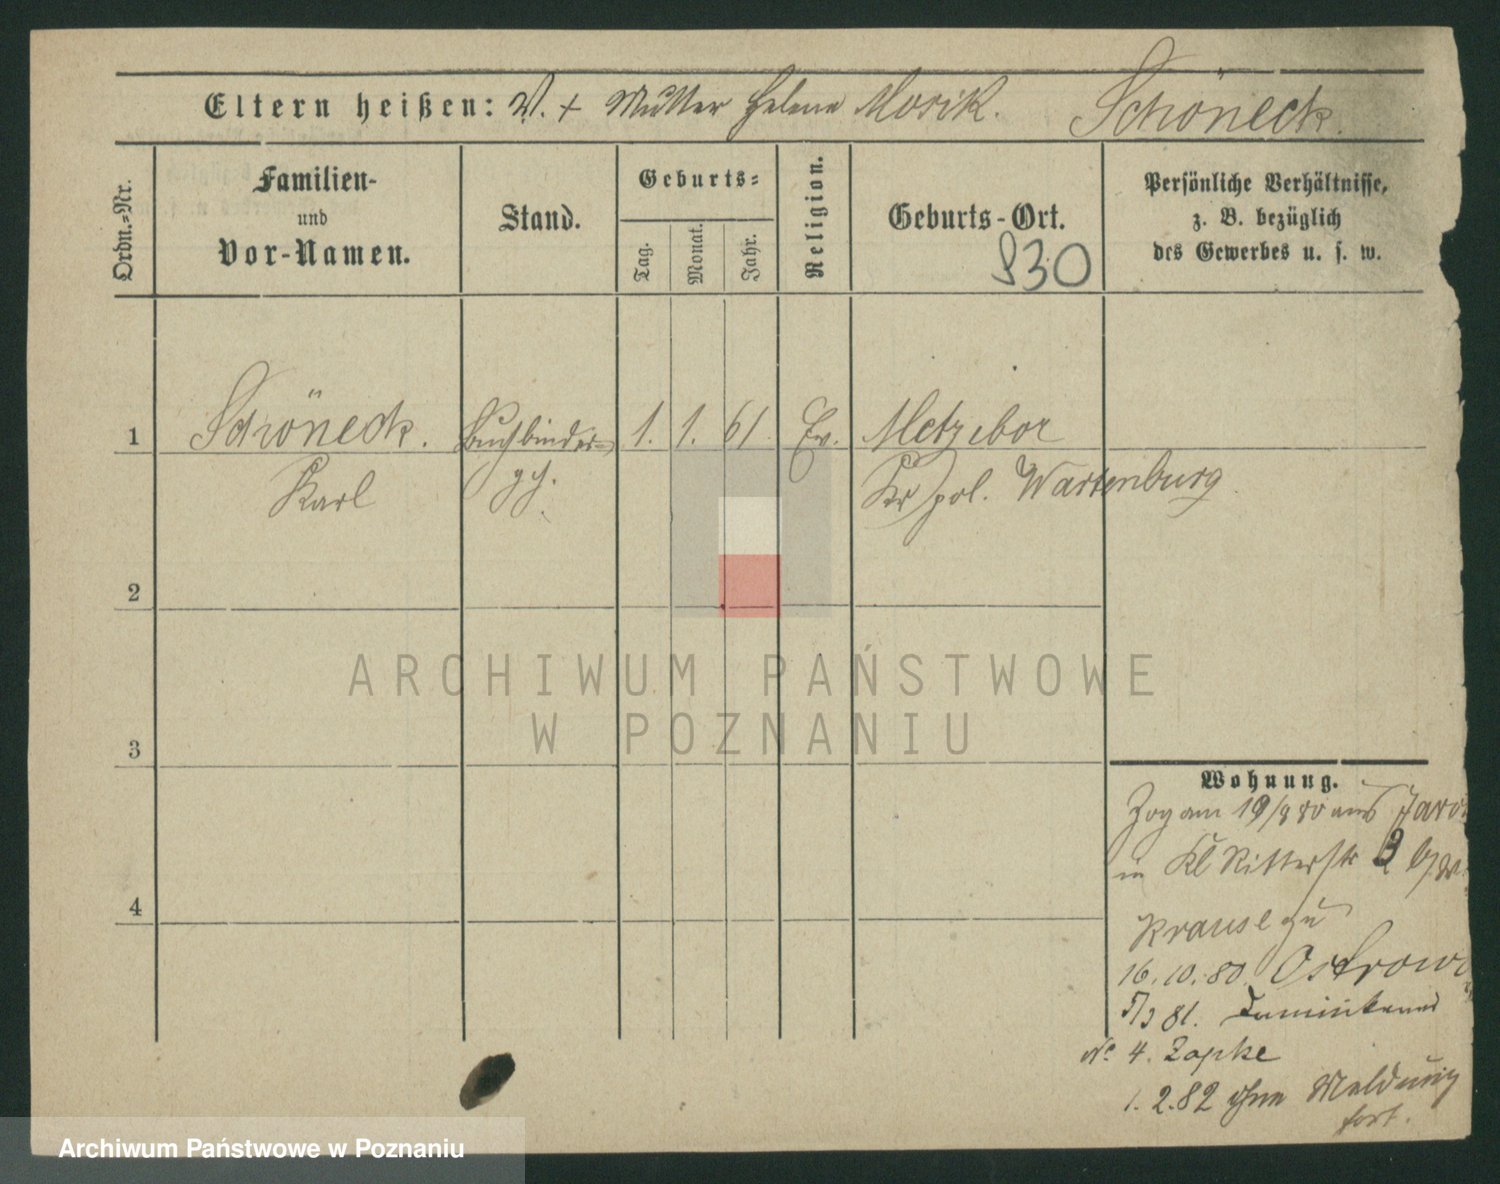 Eltern heißen: V. + Mutter Helene Morik. Schöneck.
Ordn.-Nr.
Familien-
und
Vor-Namen.
Stand.
Geburts-
Tag.
Monat.
Jahr.
Religion.
Geburts-Ort.
930
Persönliche Verhältnisse,
z. B. bezüglich
des Gewerbes u. s. w.
1 Schöneck. Buchbinder- 1. 1. 61. Ev. Metzibor
Karl Kr pol. Wartenburg
2
ARCHIWUM PAŃSTWOWE
W POZNANIU
3
Wohnung.
Zog am 19/8 80 aus
in Kl Ritterstr 3
4
Krause zu
16.10.80. Ostrowo
5/3 81. Dominikaner
No 4. Zapke
1.2.82 ohne Meldung
fort.
Archiwum Państwowe w Poznaniu